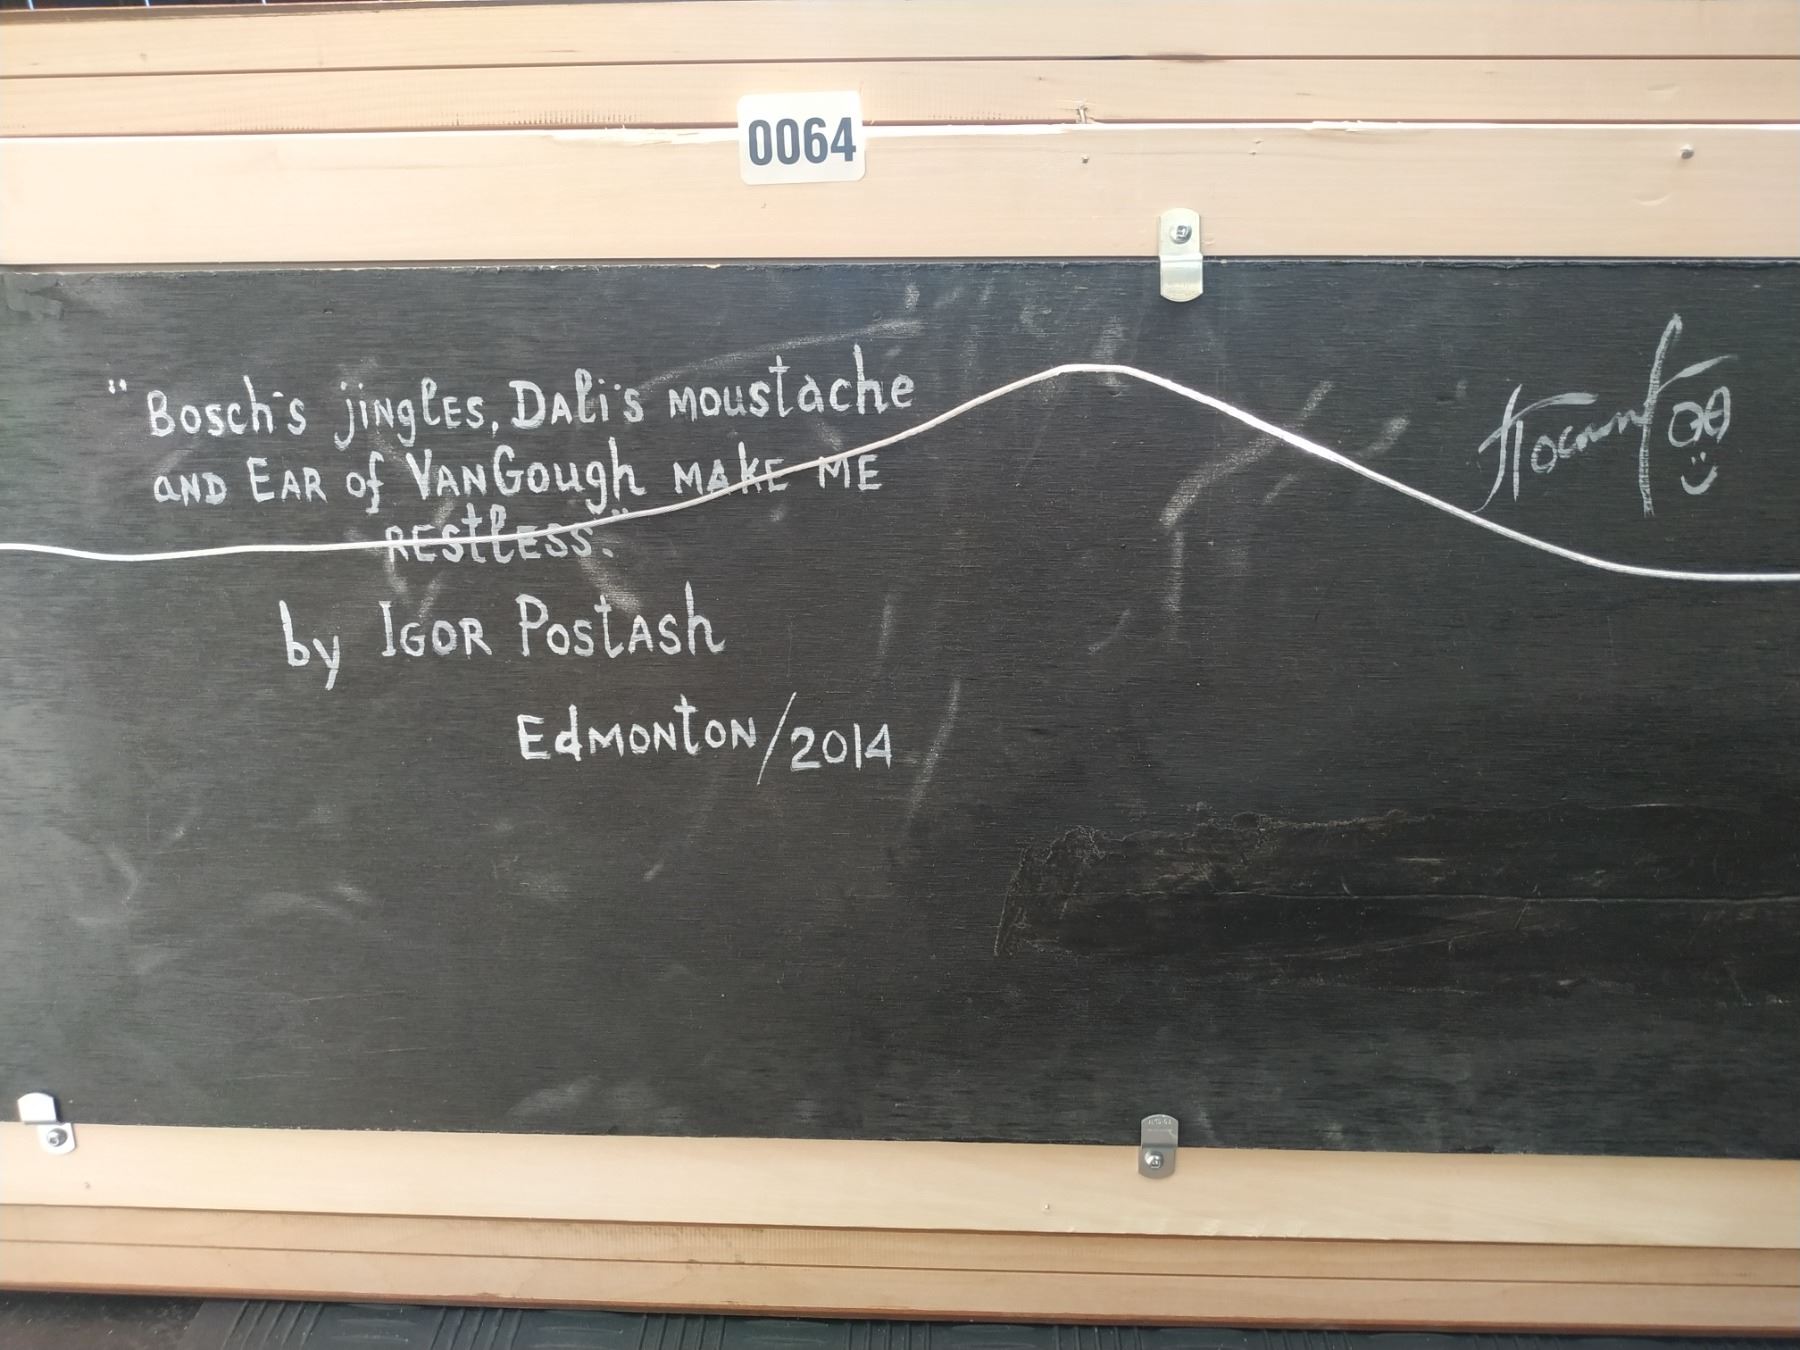 0064
"Bosch's jingles, Dali's moustache
and Ear of VanGough make me
restless."
by Igor Postash
Edmonton/2014